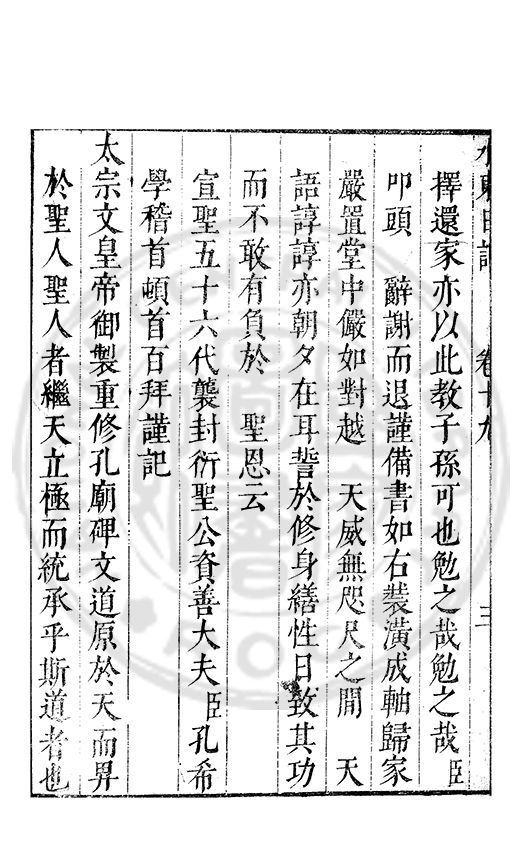 水東日記 卷十九 三
擇還家亦以此教子孫可也勉之哉勉之哉臣
叩頭 辭謝而退謹備書如右裝潢成軸歸家
嚴置堂中儼如對越 天威無咫尺之間 天
語諄諄亦朝夕在耳誓於修身繕性日致其功
而不敢有負於 聖恩云
宣聖五十六代襲封衍聖公資善大夫臣孔希
學稽首頓首百拜謹記
太宗文皇帝御製重修孔廟碑文道原於天而昇
於聖人聖人者繼天立極而統承乎斯道者也